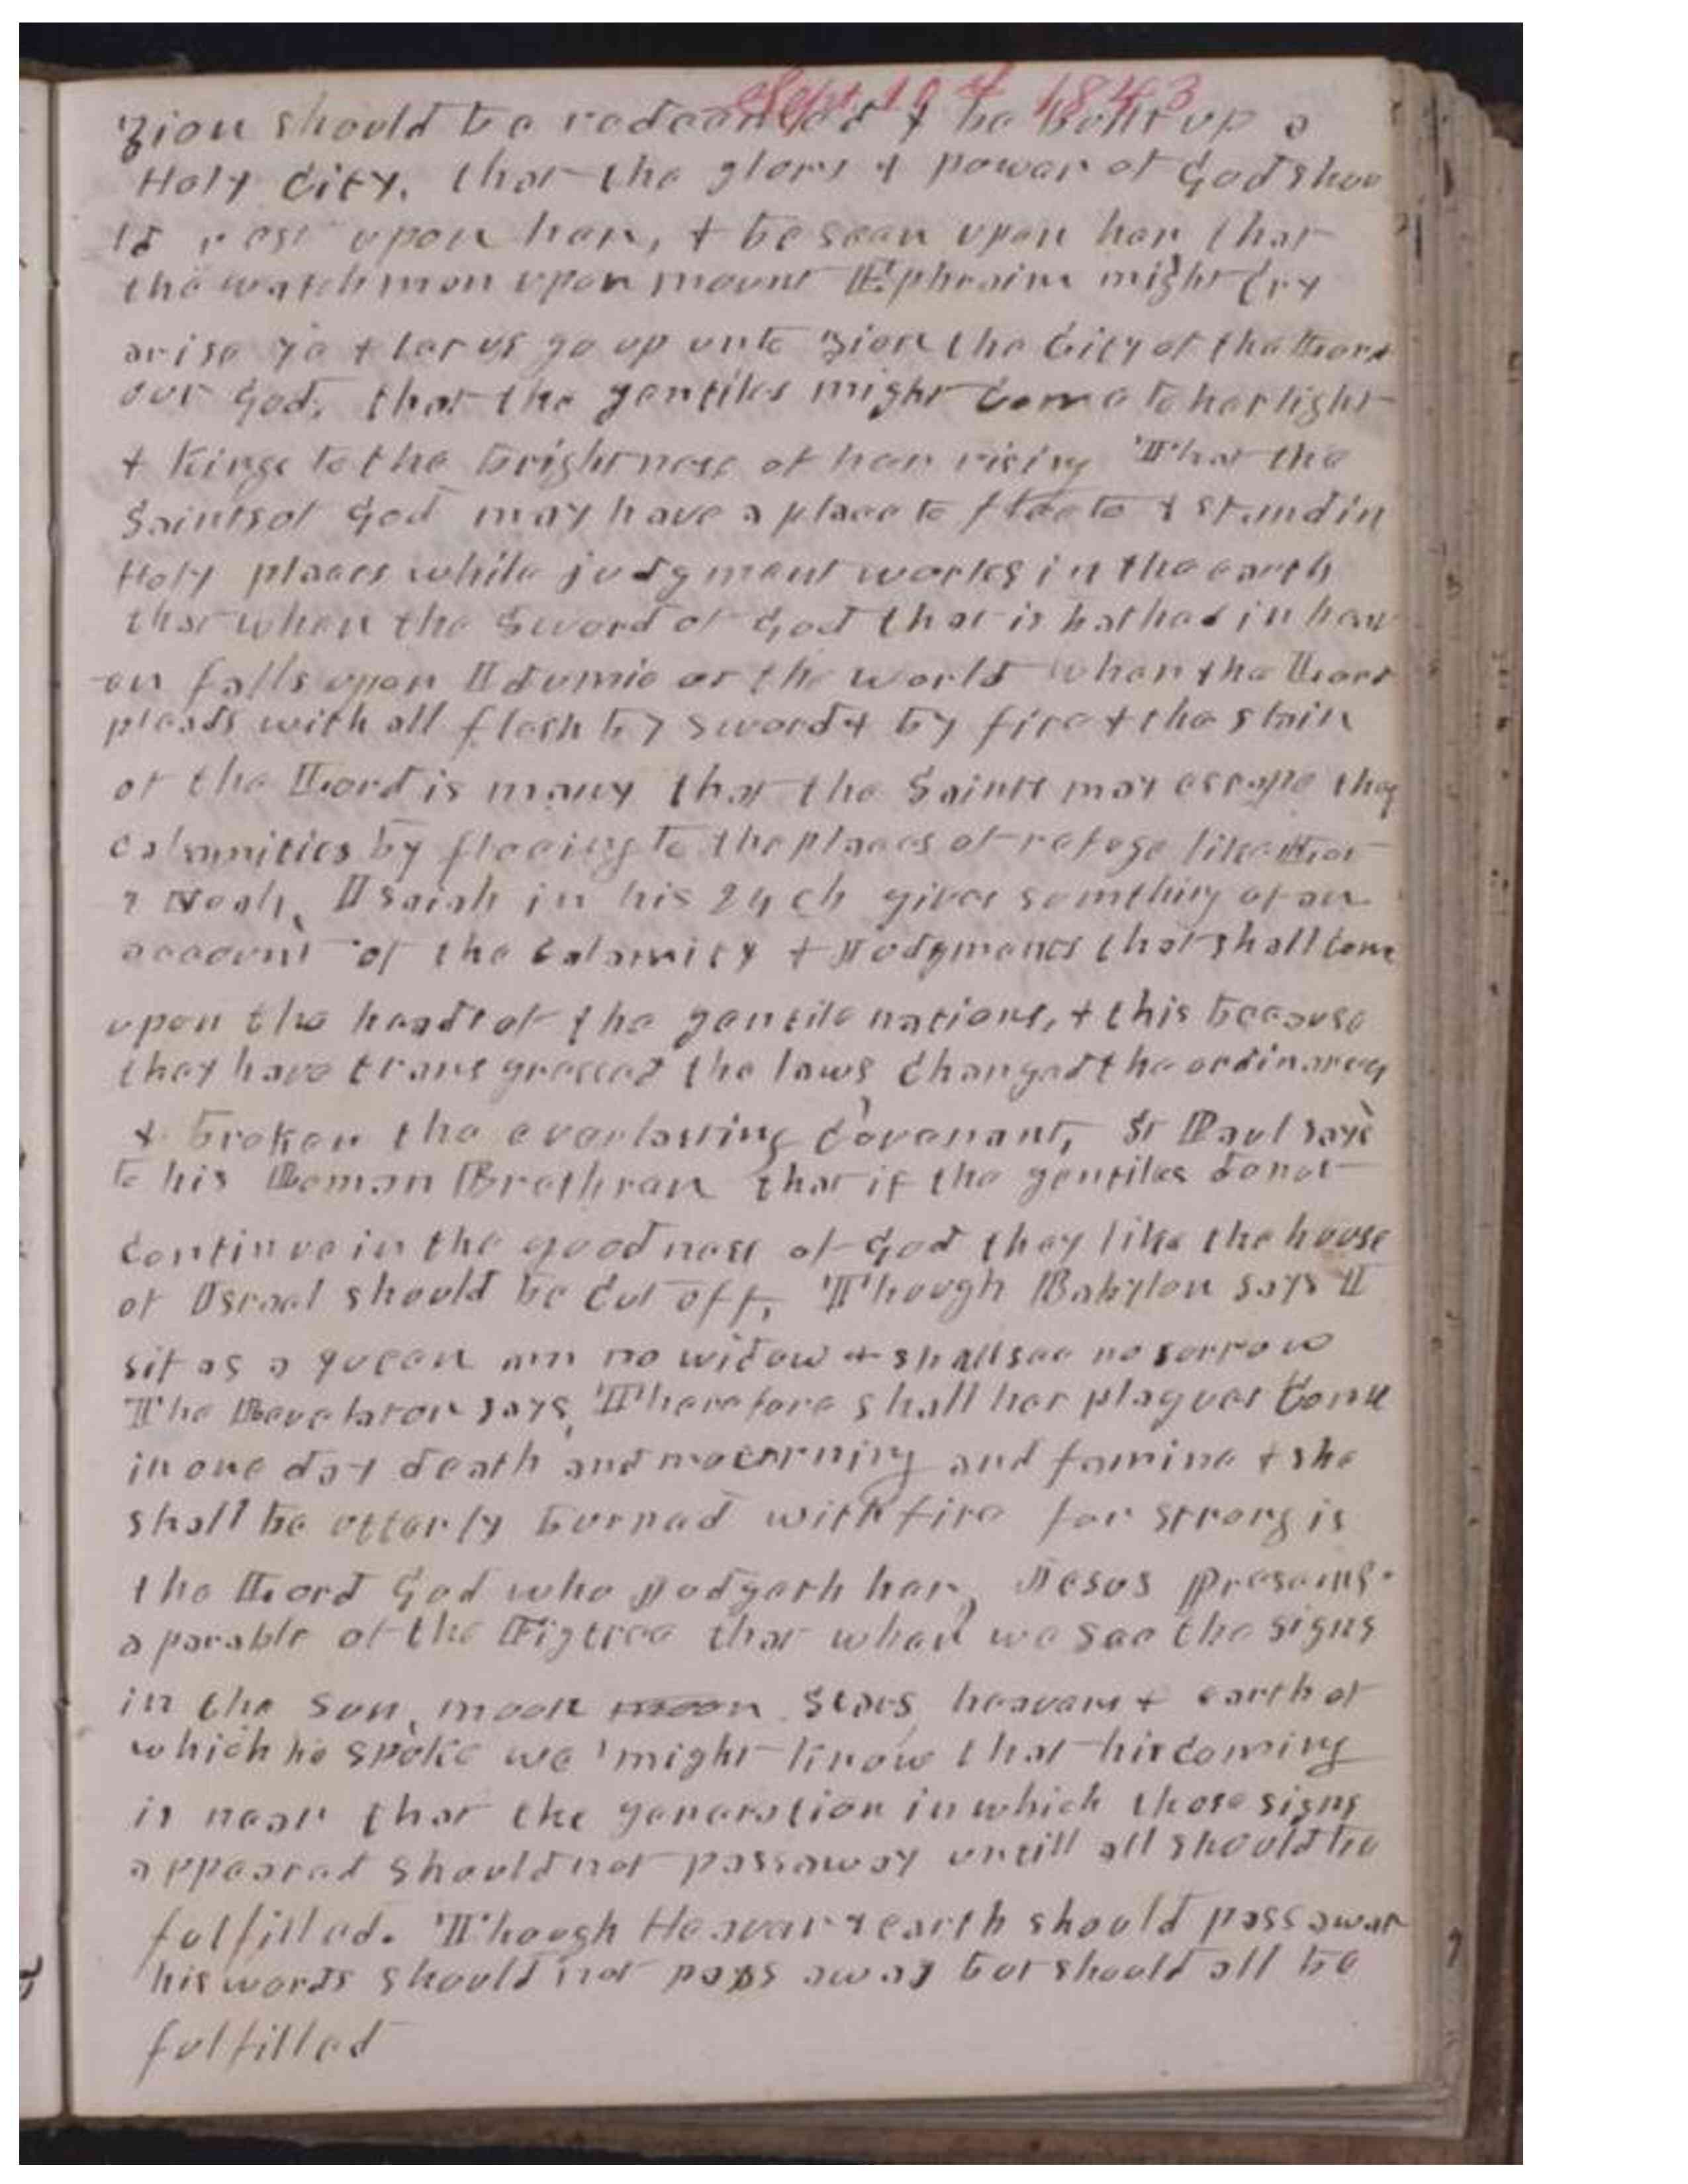 Sept 10th 1843
Zion should be redeemed & be built up a
Holy City. that the glory & power of God shou
ld rest upon her, & be seen upon her that
the watchmen upon mount Ephraim might Cry
arise ye & let us go up unto Zion the City of the Lord
our God, that the gentiles might Come to her light
& Kings to the brightness of her rising That the
Saints of God may have a place to flee to & stand in
Holy places while judgment works in the earth
that when the Sword of God that is bathed in heav
en falls upon Idumia or the world when the Lord
pleads with all flesh by sword & by fire & the slain
of the Lord is many that the Saints may escape they
calamities by fleeing to the places of refuge like Lot
& Noah, Isaiah in his 24 ch gives somthing of an
account of the Calamity & Judgments that shall Come
upon the heads of the gentile nations, & this because
they have transgressed the laws, Changed the ordinances
& broken the everlasting Covenant, St Paul says
to his Roman Brethren that if the gentiles do not
Continue in the goodness of God they like the house
of Israel should be Cut off, Though Babylon says I
sit as a queen am no widow & shall see no sorrow
The Revelator says, Therefore shall her plagues Come
in one day death and mourning and famine & she
shall be utterly burned with fire for strong is
the Lord God who Judgeth her, Jesus Presents
a parable of the Figtree that when we see the signs
in the Sun, moon moon Stars, heavens & earth of
which he spoke we might know that his Coming
is near that the generation in which those signs
appeared should not pass away untill all should be
fulfilled. Though Heaven & earth should pass away
his words should not pass away but should all be
fulfilled